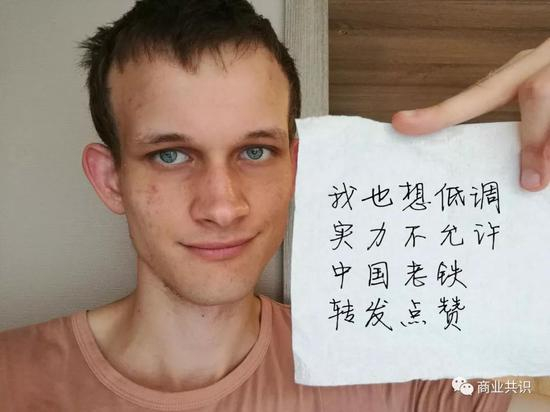 我也想低调
实力不允许
中国老铁
转发点赞
商业共识